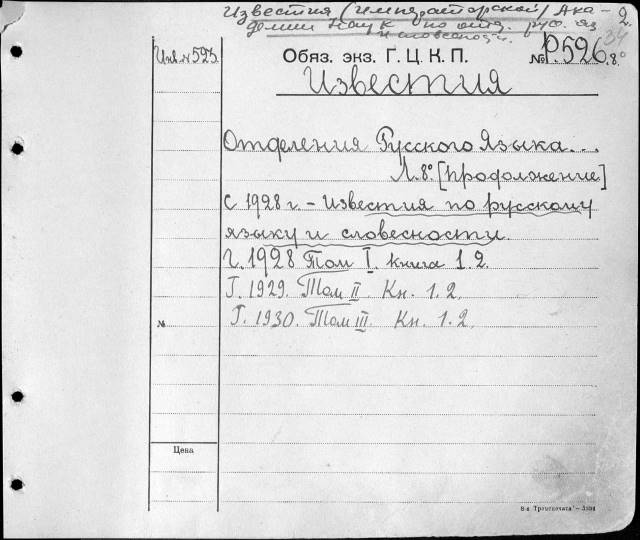 Известия (императорской) Ака-
демии Наук по отд. рус. яз
и словесности.
2.
34
Инв. № 523
Обяз. экз. Г. Ц. К. П.
№ Р.526.8°
Известия
Отделения Русского Языка...
Л. 8° [продолжение]
С 1928 г. - Известия по русскому
языку и словесности.
Г. 1928 Том I. книга 1. 2.
Г. 1929. Том II. Кн. 1. 2.
Г. 1930. Том III. Кн. 1. 2.
№
Цена